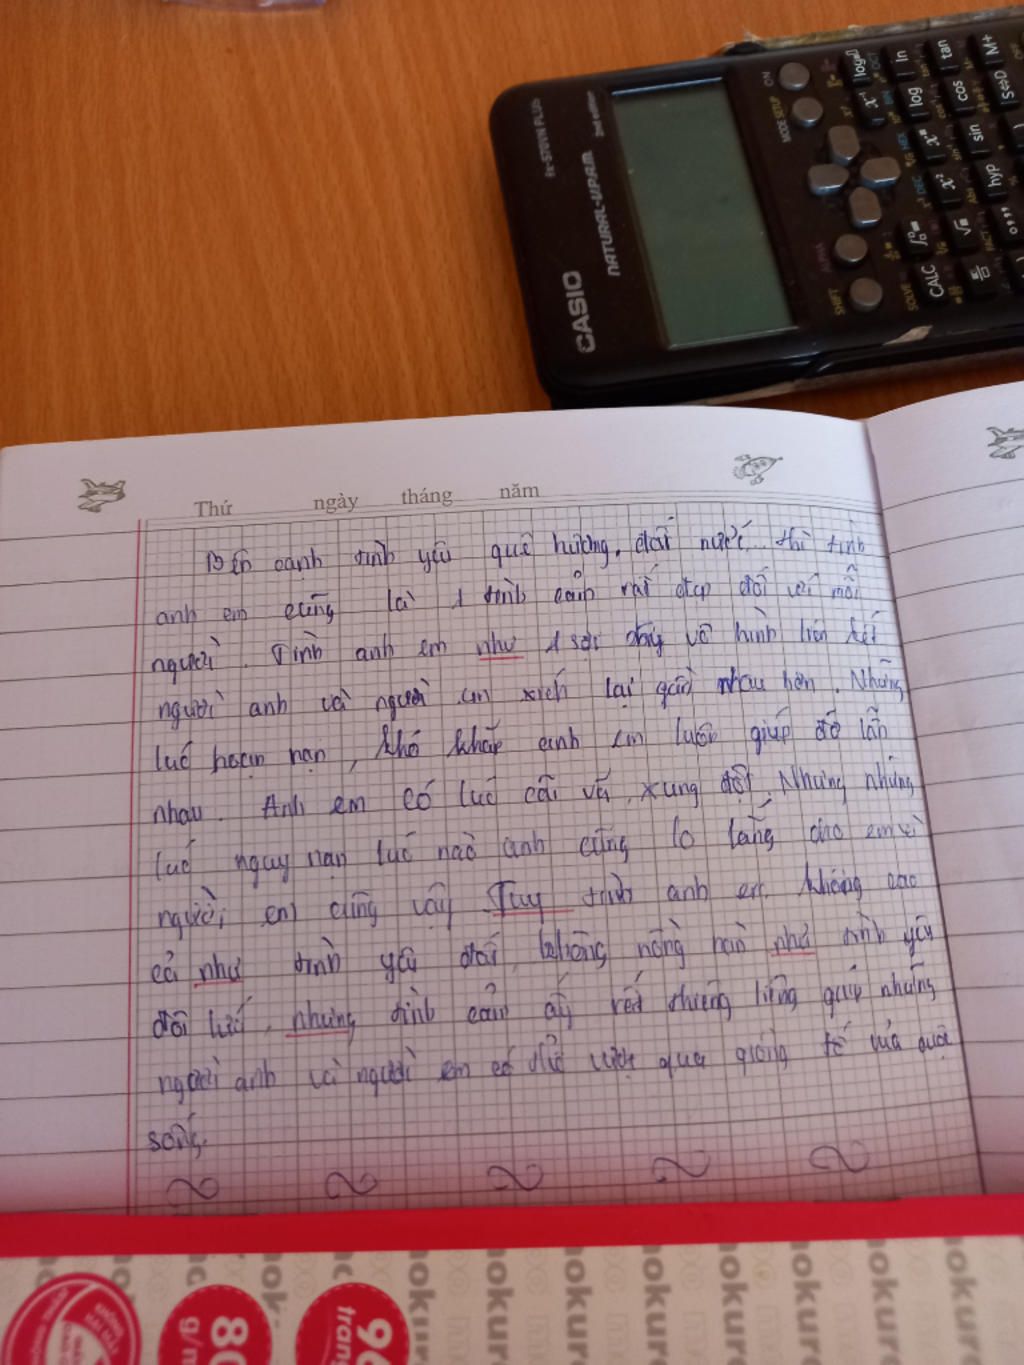 CASIO
NATURAL-V.P.A.M.
fx-570VN PLUS
2nd edition
ON
MODE SETUP
SHIFT
ALPHA
SOLVE
CALC
hyp
sin
cos
tan
log
ln
S⇔D
M+
FACT
Thứ ngày tháng năm
Bên cạnh tình yêu quê hương, đất nước... thì tình
anh em cũng là 1 tình cảm rất đẹp đối với mỗi
người. Tình anh em như 1 sợi dây vô hình liên kết
người anh và người em xích lại gần nhau hơn. Những
lúc hoạn nạn, khó khăn anh em luôn giúp đỡ lẫn
nhau. Anh em có lúc cãi vã, xung đột. Nhưng những
lúc nguy nạn lúc nào anh cũng lo lắng cho em và
người em cũng vậy Tuy tình anh em không cao
cả như tình yêu đất, không nồng nàn như tình yêu
đôi lứa, nhưng tình cảm ấy rất thiêng liêng giúp những
người anh và người em có thể vượt qua giông tố của cuộc
sống.
80
g/m
96
trang